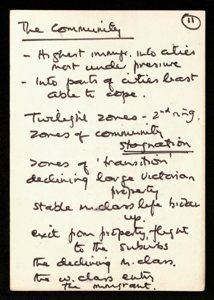 The Community
11
- Highest immig. into cities
most under pressure
- Into parts of cities least
able to cope.
Twilight zones - 2nd ring.
zones of community
stagnation
zones of 'transition'
declining large Victorian
property
stable m. class life break
up.
exit from property, flight
to the suburbs
the declining m. class.
the w. class entry
the immigrant.